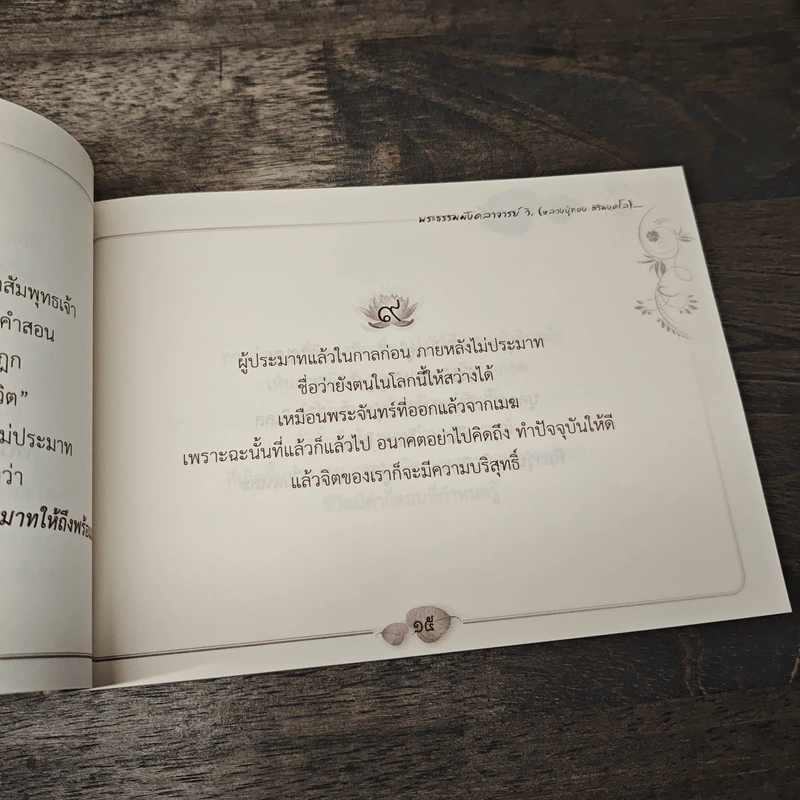 สัมพุทธเจ้า
คำสอน
ฎก
วิต”
ม่ประมาท
ว่า
มาทให้ถึงพร้อม
พระธรรมมังคลาจารย์ วิ. (หลวงปู่ทอง สิริมงฺคโล)
๙
ผู้ประมาทแล้วในกาลก่อน ภายหลังไม่ประมาท
ชื่อว่ายังตนในโลกนี้ให้สว่างได้
เหมือนพระจันทร์ที่ออกแล้วจากเมฆ
เพราะฉะนั้นที่แล้วก็แล้วไป อนาคตอย่าไปคิดถึง ทำปัจจุบันให้ดี
แล้วจิตของเราก็จะมีความบริสุทธิ์
๑๕